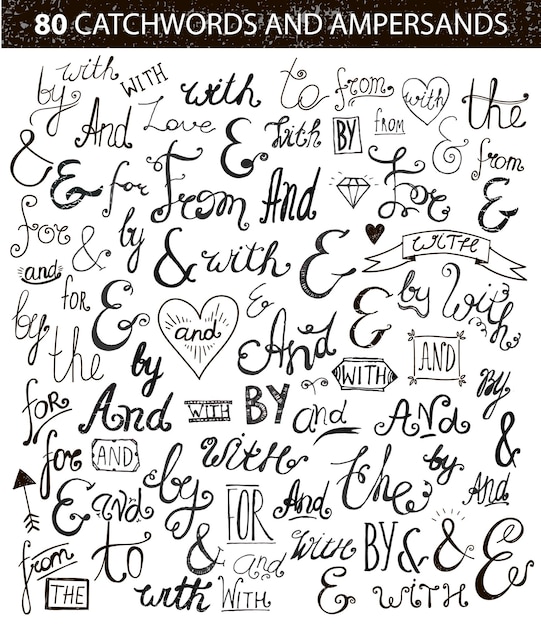 80 CATCHWORDS AND AMPERSANDS
by with WITH with to from with the
And Love & with BY FROM & from
& & for From And For &
for & by & with & WITH
and FOR & & & by with
by the and And WITH AND
by BY
for And WITH BY and AND &
for AND by with the by And
& And FOR And
from to & and with BY & & &
THE with WITH & with